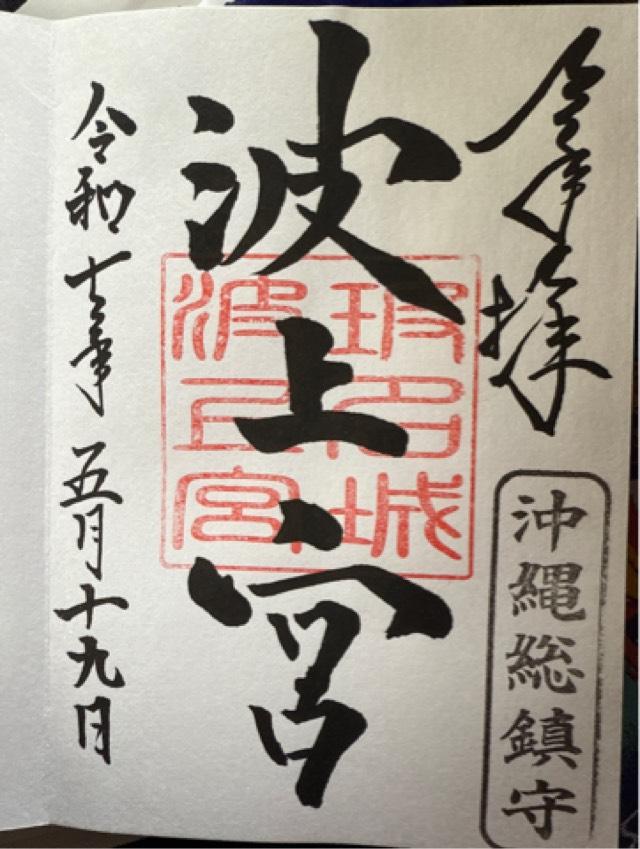 参拝
沖縄総鎮守
波上宮
玻名城
波上宮
令和七年五月十九日